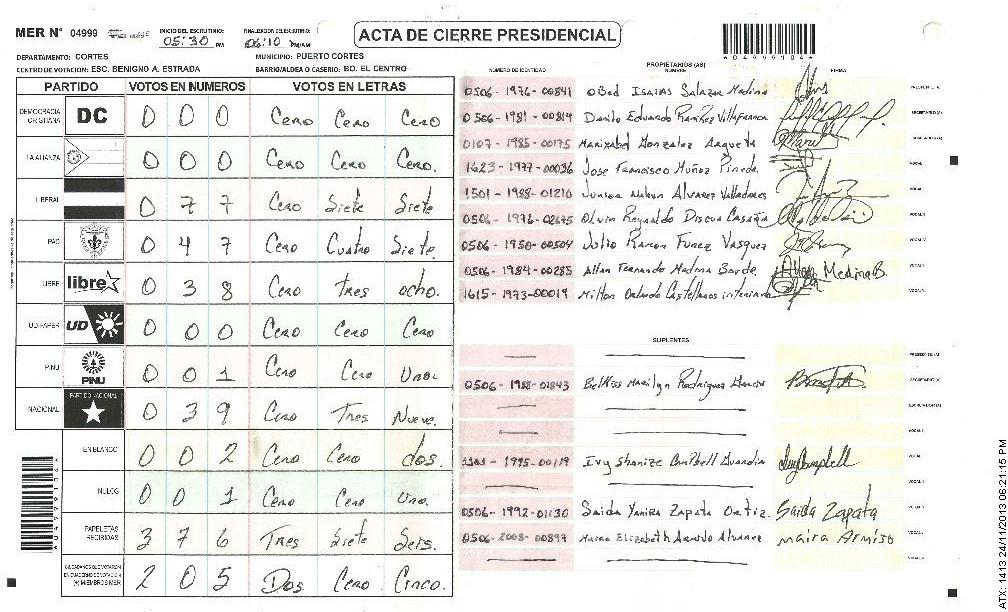 MER N° 04999 INICIO DEL ESCRUTINIO: 05:30 PM FINALIZACION DEL ESCRUTINIO: 06:10 PM/AM ACTA DE CIERRE PRESIDENCIAL
DEPARTAMENTO: CORTES MUNICIPIO: PUERTO CORTES
CENTRO DE VOTACION: ESC. BENIGNO A. ESTRADA BARRIO/ALDEA O CASERIO: BO. EL CENTRO
PARTIDO VOTOS EN NUMEROS VOTOS EN LETRAS
DEMOCRACIA CRISTIANA DC 0 0 0 Cero Cero Cero
LA ALIANZA 0 0 0 Cero Cero Cero.
LIBERAL 0 7 7 Cero Siete Siete
PAC 0 4 7 Cero Cuatro Siete.
LIBRE libre 0 3 8 Cero Tres ocho.
UD-FAPER UD 0 0 0 Cero Cero Cero
PINU PINU 0 0 1 Cero Cero Uno.
NACIONAL PARTIDO NACIONAL 0 3 9 Cero Tres Nueve.
EN BLANCO 0 0 2 Cero Cero dos.
NULOS 0 0 1 Cero Cero Uno.
PAPELETAS RECIBIDAS 3 7 6 Tres Siete Seis.
CIUDADANOS QUE VOTARON EN CUADERNO DE VOTACION (+) MIEMBROS MER 2 0 5 Dos Cero Cinco.
*04999104*
PROPIETARIOS (AS)
NUMERO DE IDENTIDAD NOMBRE FIRMA
0506-1976-00841 Obed Isaias Salazar Medina PRESIDENTE (A)
0506-1981-00814 Danilo Eduardo Ramirez Villafranca SECRETARIO (A)
0107-1985-00175 Marixabel Gonzalez Argueta
1623-1977-00036 Jose Francisco Muñoz Pineda VOCAL
1501-1988-01210 Junior Nahun Alvarez Valladares VOCAL
0506-1976-02675 Olvin Reynaldo Discua VOCAL
0506-1950-00504 Julio Ramon Funez Vasquez VOCAL
0506-1984-00285 Allan Fernando Medina Medina B. VOCAL
1615-1973-00019 Milton Orlando Castellanos VOCAL
SUPLENTES
PRESIDENTE (A)
0506-1988-01843 Belkiss Marilyn Rodriguez SECRETARIO (A)
ESCRUTADOR (A)
VOCAL
1995-00119 Ivy Shanize Campbell Guardia VOCAL
VOCAL
0506-1992-01130 Saida Yamira Zapata Ortiz. Saida Zapata VOCAL
0506-2008-00897 Elizabeth Alvarez VOCAL
VOCAL
ATX: 1413 24/11/2013 06:21:15 PM